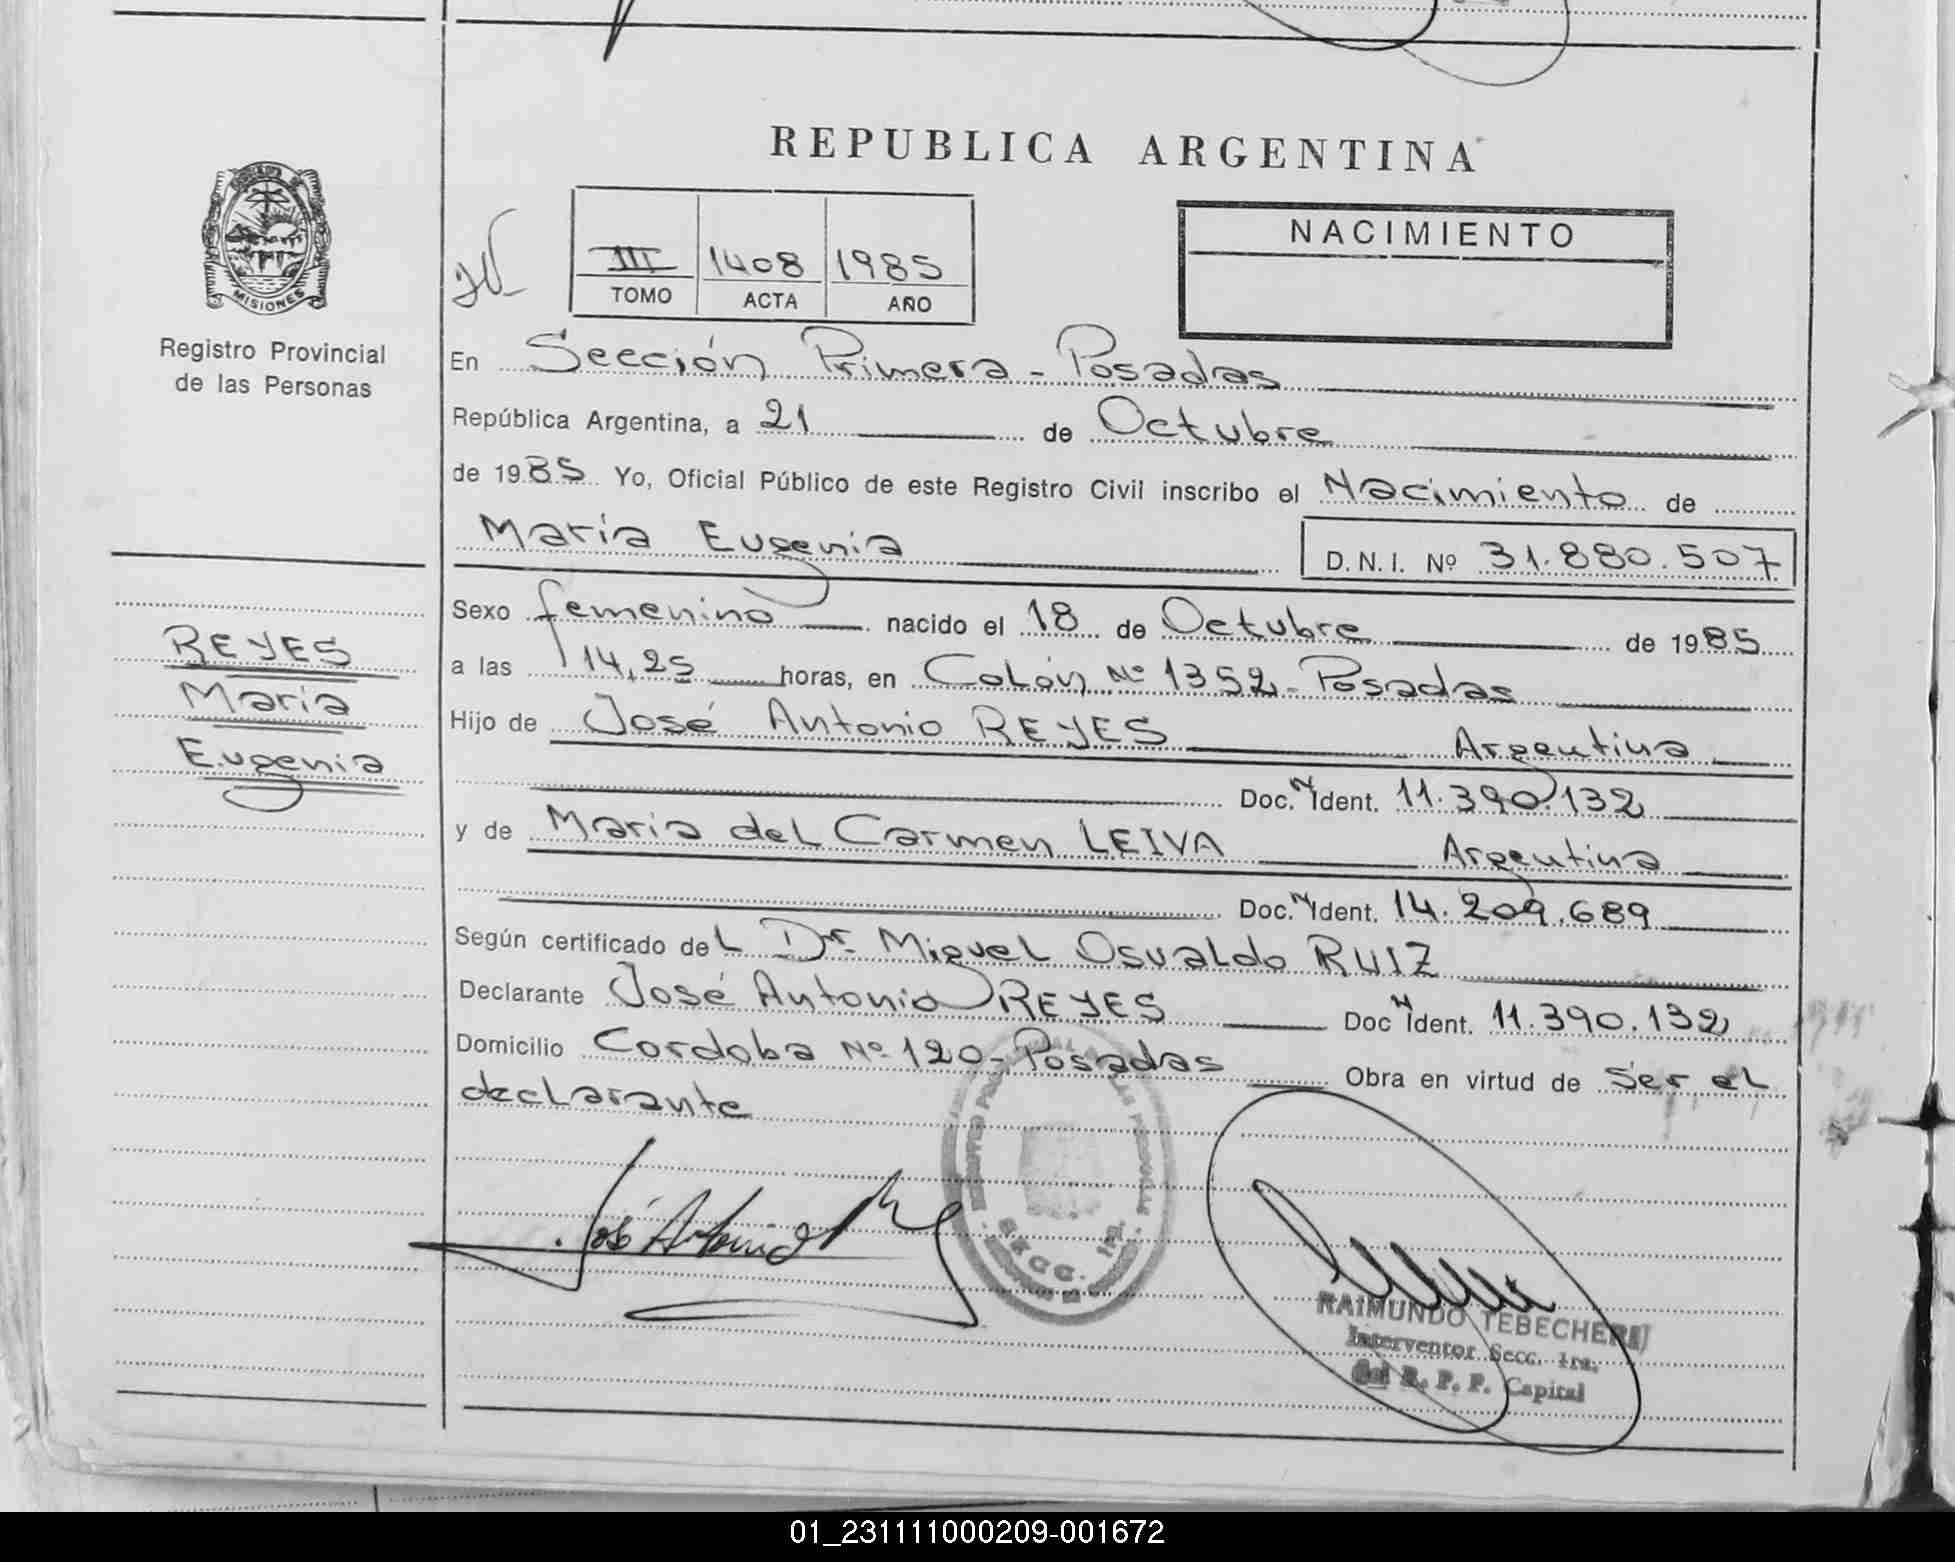 REPUBLICA ARGENTINA
MISIONES
Registro Provincial
de las Personas
III 1408 1985
TOMO ACTA AÑO
NACIMIENTO
En Sección Primera - Posadas
República Argentina, a 21 de Octubre
de 1985 Yo, Oficial Público de este Registro Civil inscribo el Nacimiento de
María Eugenia D.N.I. Nº 31.880.507
Sexo femenino nacido el 18 de Octubre de 1985
a las 14,25 horas, en Colón Nº 1352 - Posadas
Hijo de José Antonio REYES Argentina
Doc. N Ident. 11.390.132
y de Maria del Carmen LEIVA Argentina
Doc. N Ident. 14.209.689
Según certificado del Dr. Miguel Osvaldo RUIZ
Declarante José Antonio REYES Doc N Ident. 11.390.132
Domicilio Cordoba Nº 120 - Posadas Obra en virtud de ser el
declarante
REYES
María
Eugenia
José Antonio R
RAIMUNDO TEBECHERI
Interventor Secc. 1ra.
del R. P. P. Capital
01_231111000209-001672